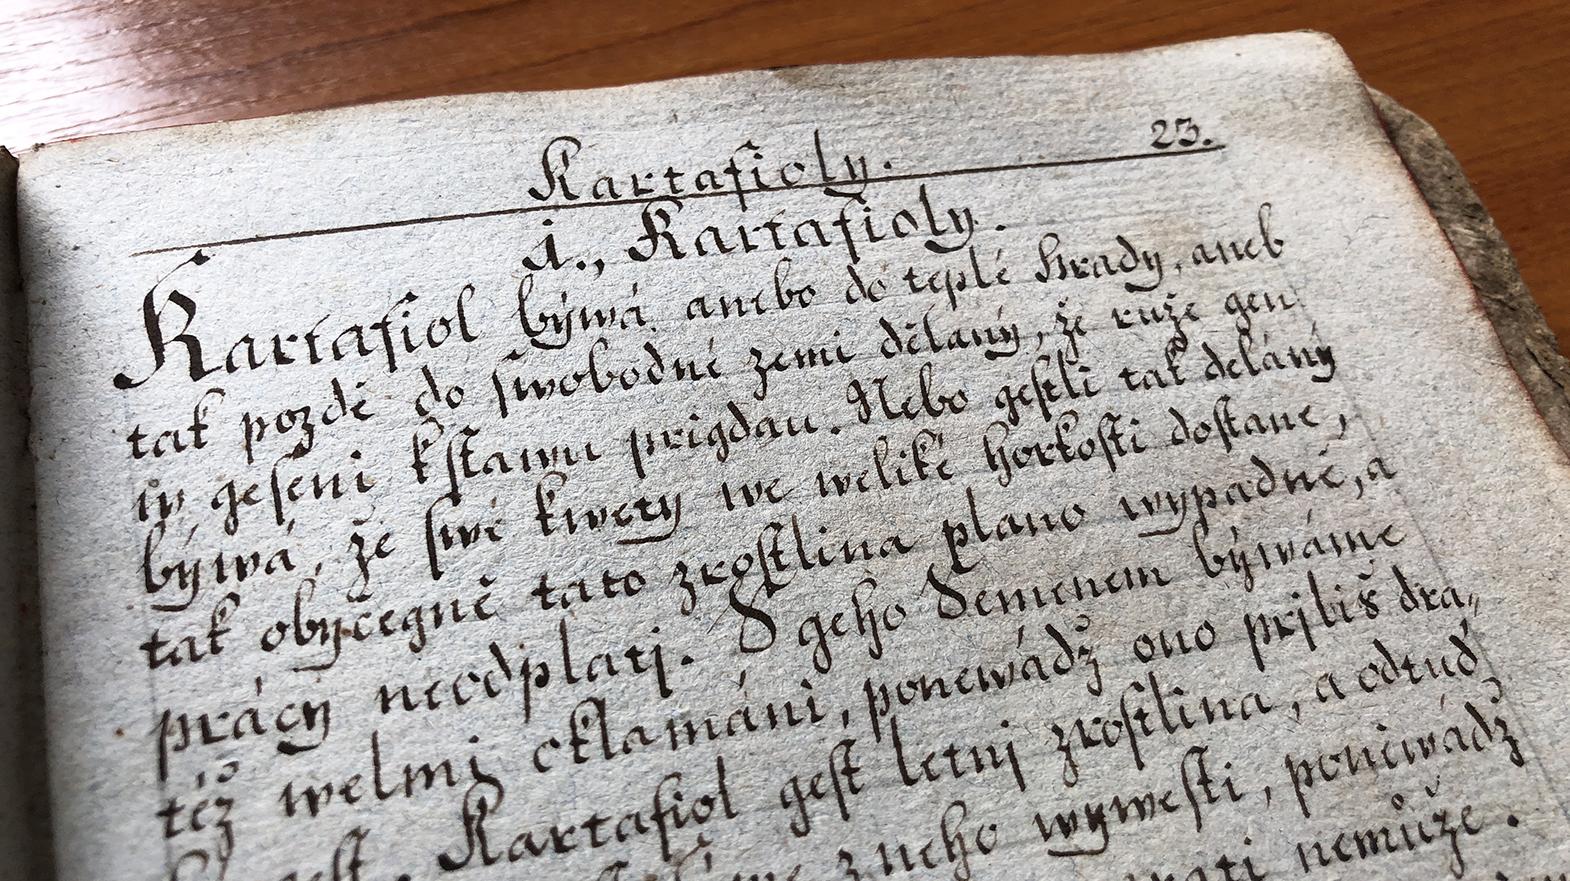 23.
Kartafioly.
1., Kartafioly.
Kartafiol býwá anebo do teplé hrady, aneb
tak pozdě do swobodné zemi dělaný, že ruže gen
w geseni k stawu prigdau. Nebo gestli tak dělaný
býwá, že swé kwety we weliké horkosti dostane,
tak obyčegně tato zrostlina plano wypadne, a
prácy neodplatj. S geho Semenem býwáme
též welmi oklamáni, ponewádž ono přjliš dra„
gest. Kartafiol gest letnj zrostlina, a odtud
z neho wywesti, ponewádž
nemůže.